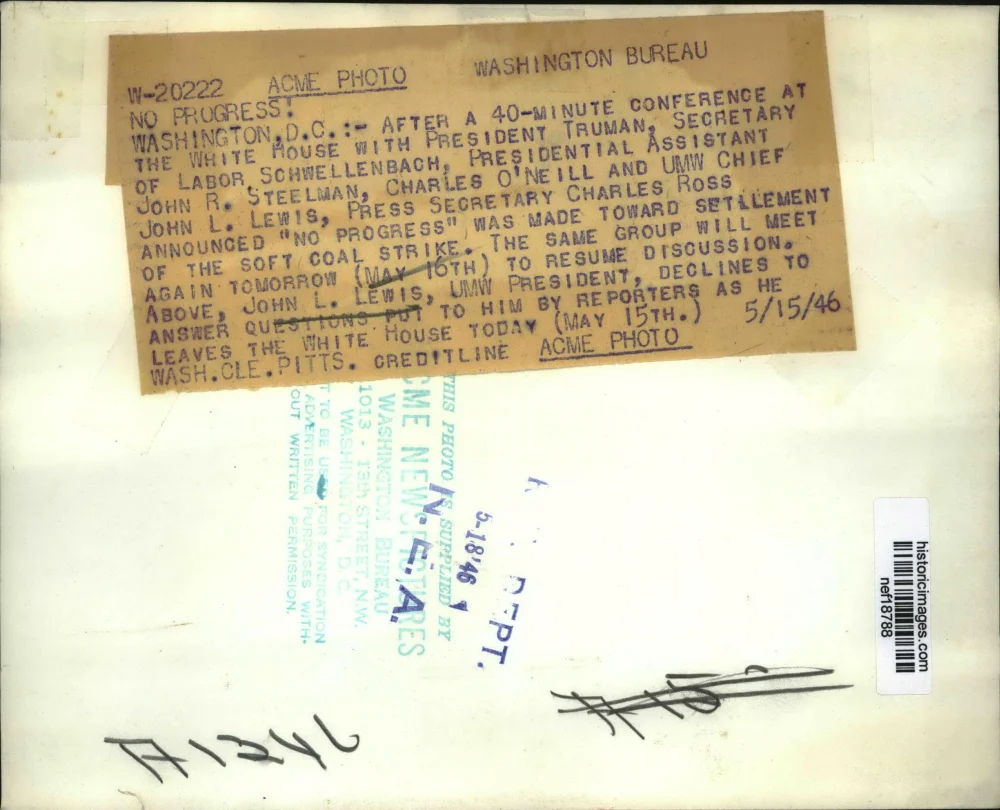 W-20222 ACME PHOTO WASHINGTON BUREAU
NO PROGRESS!
WASHINGTON, D.C. :- AFTER A 40-MINUTE CONFERENCE AT
THE WHITE HOUSE WITH PRESIDENT TRUMAN, SECRETARY
OF LABOR SCHWELLENBACH, PRESIDENTIAL ASSISTANT
JOHN R. STEELMAN, CHARLES O'NEILL AND UMW CHIEF
JOHN L. LEWIS, PRESS SECRETARY CHARLES ROSS
ANNOUNCED "NO PROGRESS" WAS MADE TOWARD SETLLEMENT
OF THE SOFT COAL STRIKE. THE SAME GROUP WILL MEET
AGAIN TOMORROW (MAY 16TH) TO RESUME DISCUSSION.
ABOVE, JOHN L. LEWIS, UMW PRESIDENT, DECLINES TO
ANSWER QUESTIONS PUT TO HIM BY REPORTERS AS HE
LEAVES THE WHITE HOUSE TODAY (MAY 15TH.) 5/15/46
WASH.CLE.PITTS. CREDITLINE ACME PHOTO
THIS PHOTO IS SUPPLIED BY
ACME NEWSPICTURES
WASHINGTON BUREAU
1013 - 13th STREET, N.W.
WASHINGTON, D.C.
T TO BE USED FOR SYNDICATION
ADVERTISING PURPOSES WITH-
OUT WRITTEN PERMISSION.
N.E.A.
5-18'46
DEPT.
historicimages.com
nef18788